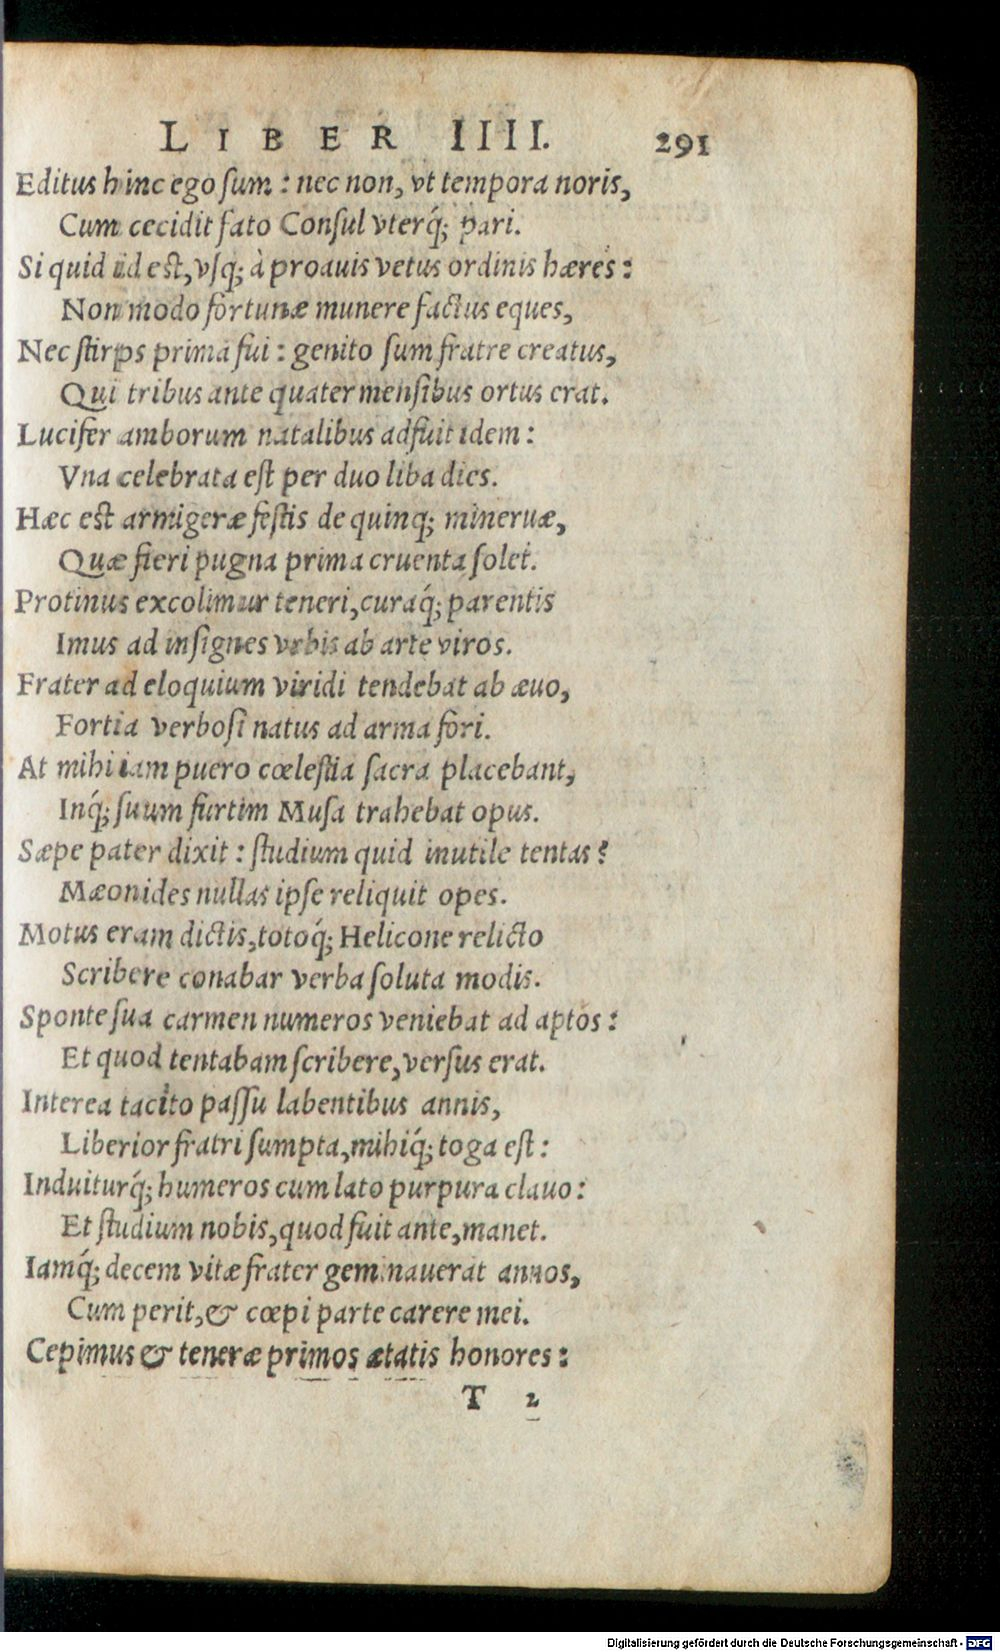 LIBER IIII. 291
Editus hinc ego sum : nec non, vt tempora noris,
Cum cecidit fato Consul vterq́; pari.
Si quid id est, vsq; à proauis vetus ordinis hæres :
Non modo fortunæ munere factus eques,
Nec stirps prima fui : genito sum fratre creatus,
Qui tribus ante quater mensibus ortus erat.
Lucifer amborum natalibus adfuit idem :
Vna celebrata est per duo liba dies.
Hæc est armigeræ festis de quinq; mineruæ,
Quæ fieri pugna prima cruenta solet.
Protinus excolimur teneri, curaq́; parentis
Imus ad insignes vrbis ab arte viros.
Frater ad eloquium viridi tendebat ab æuo,
Fortia verbosi natus ad arma fori.
At mihi iam puero cœlestia sacra placebant,
Inq́; suum furtim Musa trahebat opus.
Sæpe pater dixit : studium quid inutile tentas?
Mæonides nullas ipse reliquit opes.
Motus eram dictis, totoq́; Helicone relicto
Scribere conabar verba soluta modis.
Sponte sua carmen numeros veniebat ad aptos :
Et quod tentabam scribere, versus erat.
Interea tacito passu labentibus annis,
Liberior fratri sumpta, mihiq́; toga est :
Induiturq́; humeros cum lato purpura clauo :
Et studium nobis, quod fuit ante, manet.
Iamq́; decem vitæ frater geminauerat annos,
Cum perit, & cœpi parte carere mei.
Cepimus & teneræ primos ætatis honores :
T 2
Digitalisierung gefördert durch die Deutsche Forschungsgemeinschaft - DFG